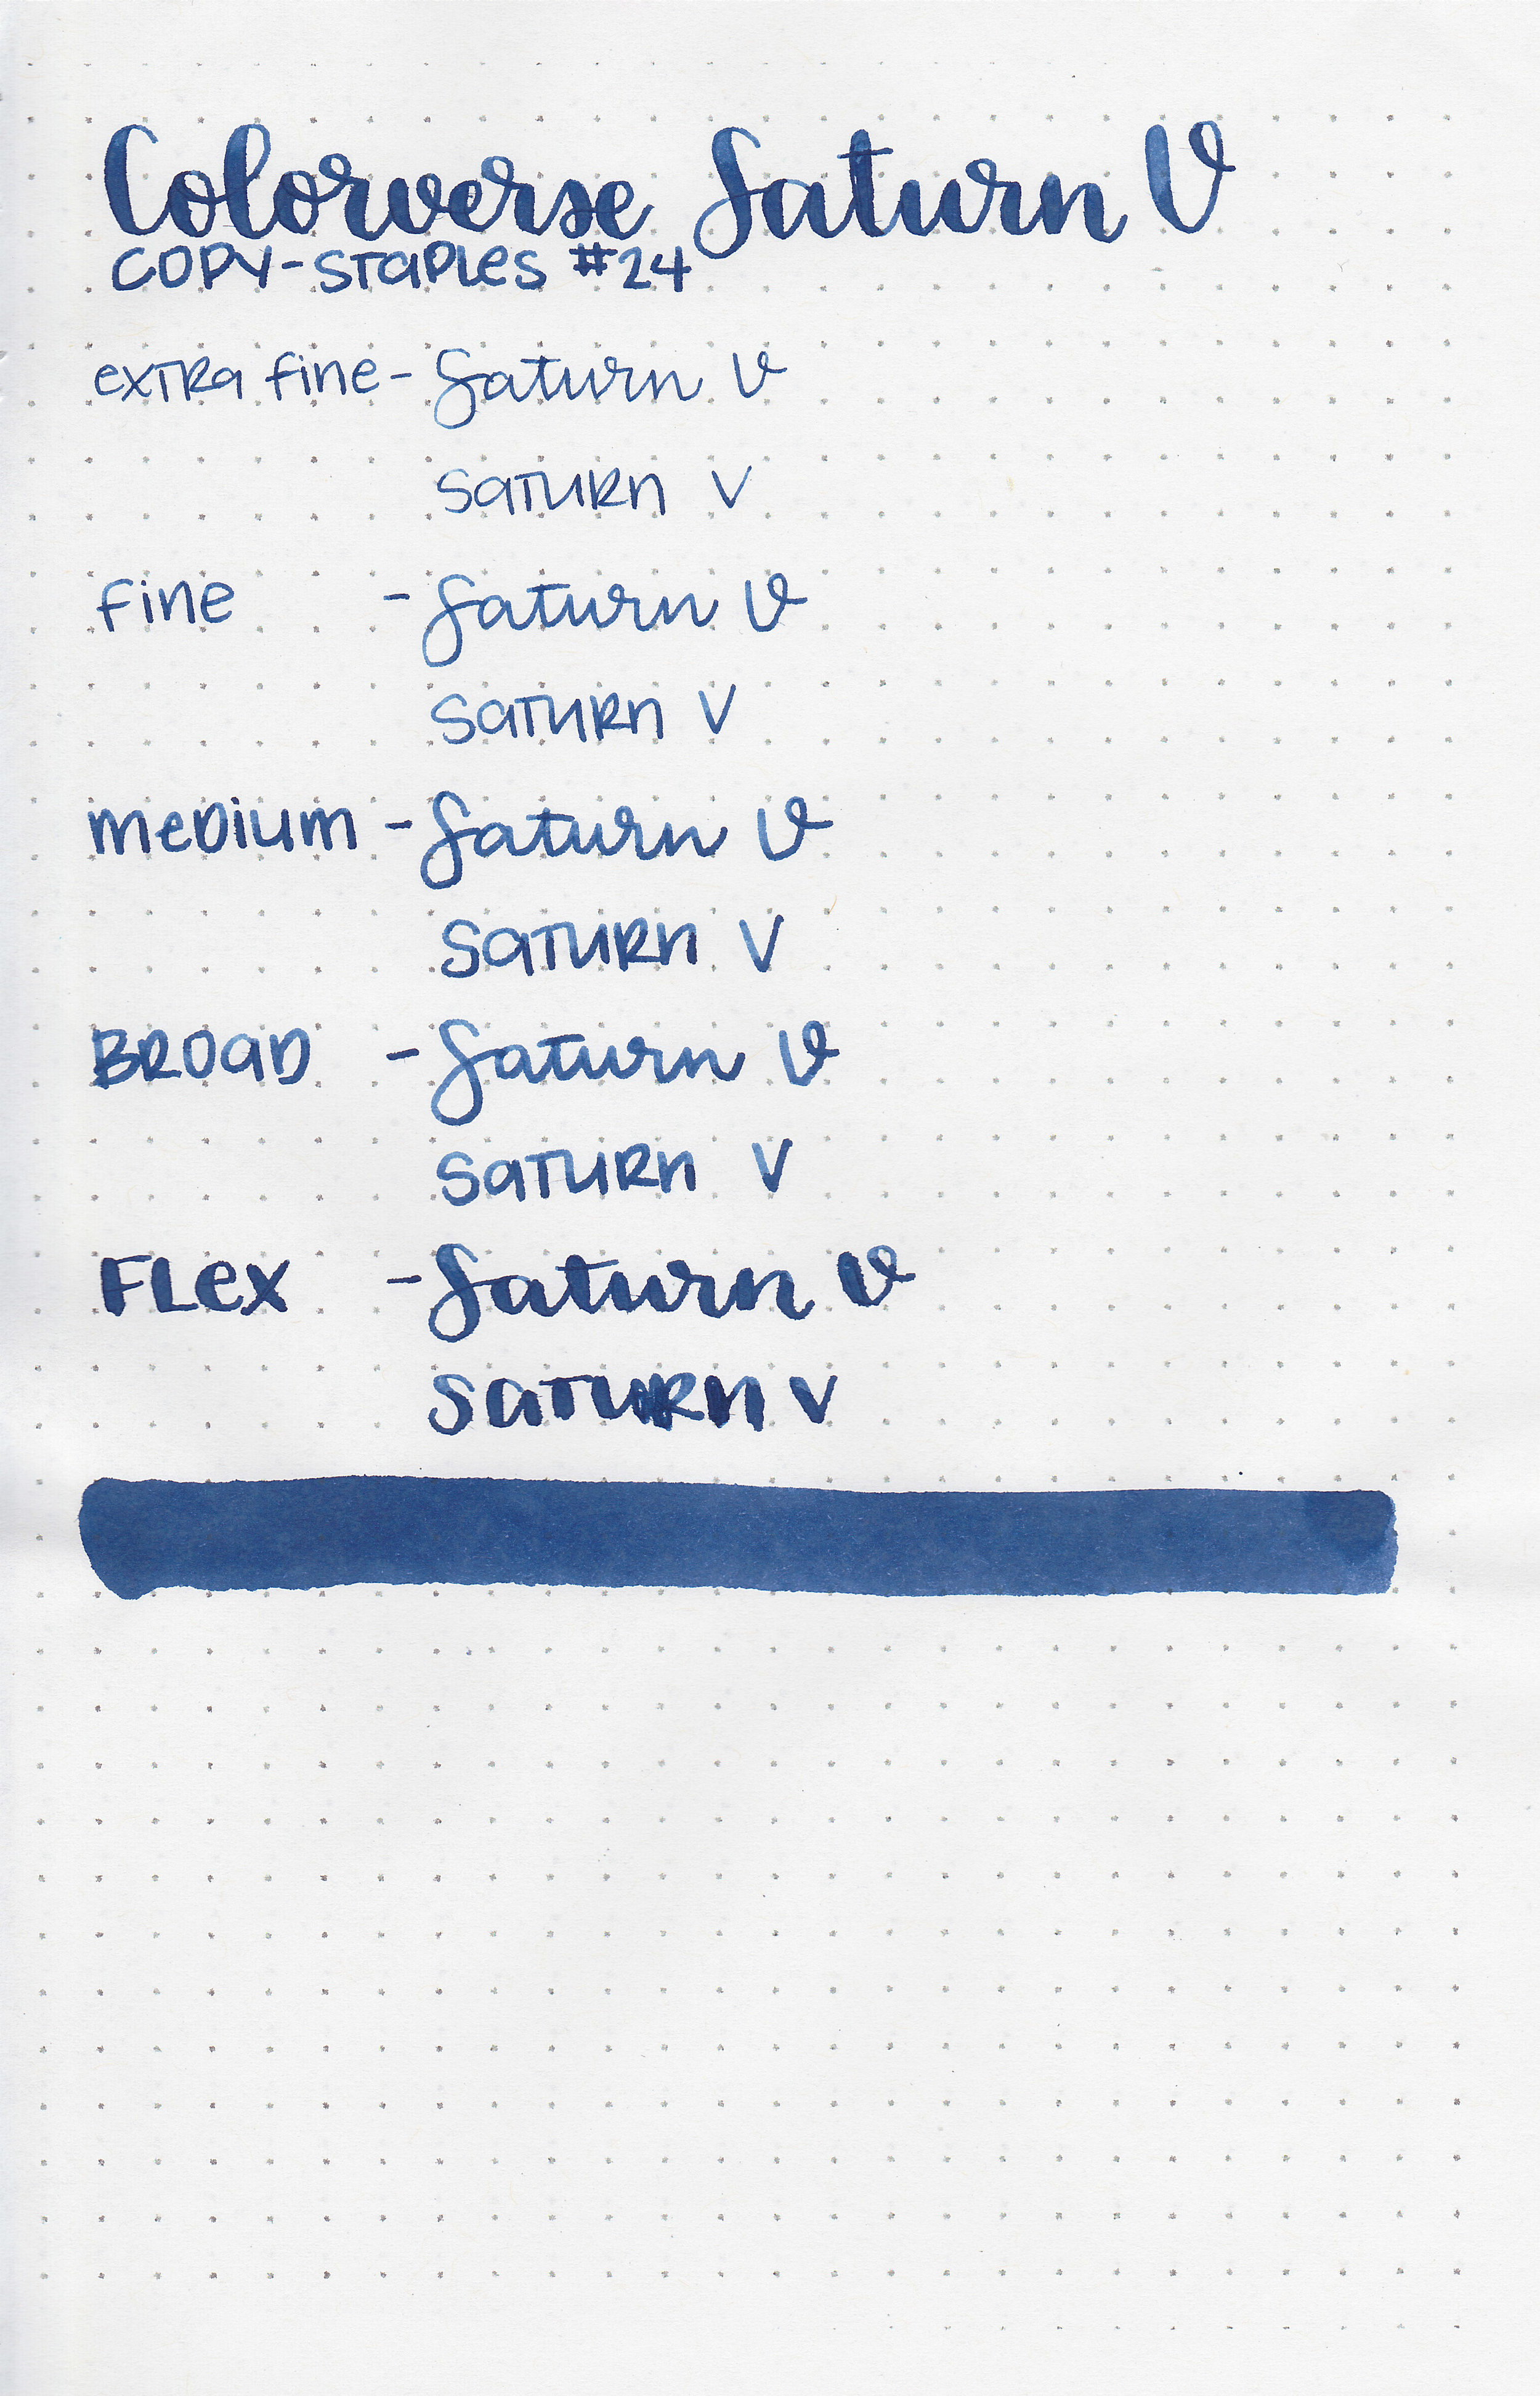 Colorverse Saturn V
COPY-STAPLES #24
extra fine - Saturn V
Saturn V
Fine - Saturn V
Saturn V
Medium - Saturn V
Saturn V
Broad - Saturn V
Saturn V
Flex - Saturn V
Saturn V